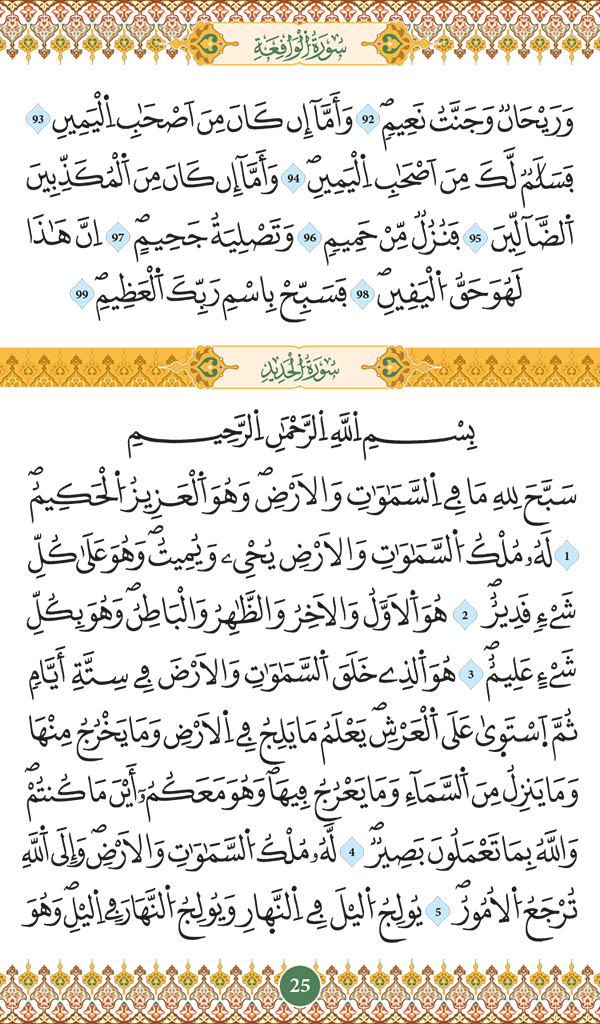 سُورَةُ الْوَاقِعَةِ
وَرَيْحَانٌ وَجَنَّتُ نَعِيمٍۖ 92 وَأَمَّآ إِن كَانَ مِنَ اَصْحَٰبِ اِ۬لْيَمِينِ 93
فَسَلَٰمٌ لَّكَ مِنَ اَصْحَٰبِ اِ۬لْيَمِينِۖ 94 وَأَمَّآ إِن كَانَ مِنَ اَ۬لْمُكَذِّبِينَ
اَ۬لضَّآلِّينَ 95 فَنُزُلٌ مِّنْ حَمِيمٍ 96 وَتَصْلِيَةُ جَحِيمٍۖ 97 اِنَّ هَٰذَا
لَهُوَ حَقُّ اُ۬لْيَقِينِۖ 98 فَسَبِّحْ بِاسْمِ رَبِّكَ اَ۬لْعَظِيمِۖ 99
سُورَةُ الْحَدِيدِ
بِسْمِ اِ۬للَّهِ اِ۬لرَّحْمَٰنِ اِ۬لرَّحِيمِ
سَبَّحَ لِلهِ مَا فِے اِ۬لسَّمَٰوَٰتِ وَالَارْضِۖ وَهُوَ اَ۬لْعَزِيزُ اُ۬لْحَكِيمُۖ
1 لَهُۥ مُلْكُ اُ۬لسَّمَٰوَٰتِ وَالَارْضِ يُحْيِۦ وَيُمِيتُۖ وَهُوَ عَلَىٰ كُلِّ
شَےْءٖ قَدِيرٌۖ 2 هُوَ اَ۬لَاوَّلُ وَالَاخِرُ وَالظَّٰهِرُ وَالْبَاطِنُۖ وَهُوَ بِكُلِّ
شَےْءٍ عَلِيمٌۖ 3 هُوَ اَ۬لذِے خَلَقَ اَ۬لسَّمَٰوَٰتِ وَالَارْضَ فِے سِتَّةِ أَيَّامٖ
ثُمَّ اَ۪سْتَوىٰ عَلَى اَ۬لْعَرْشِۖ يَعْلَمُ مَا يَلِجُ فِے اِ۬لَارْضِ وَمَا يَخْرُجُ مِنْهَا
وَمَا يَنزِلُ مِنَ اَ۬لسَّمَآءِ وَمَا يَعْرُجُ فِيهَاۖ وَهُوَ مَعَكُمُۥٓ أَيْنَ مَا كُنتُمْۖ
وَاللَّهُ بِمَا تَعْمَلُونَ بَصِيرٌۖ 4 لَّهُۥ مُلْكُ اُ۬لسَّمَٰوَٰتِ وَالَارْضِۖ وَإِلَى اَ۬للَّهِ
تُرْجَعُ اُ۬لُامُورُۖ 5 يُولِجُ اُ۬ليْلَ فِے اِ۬لنَّهِارِ وَيُولِجُ اُ۬لنَّهَارَ فِے اِ۬ليْلِۖ وَهُوَ
25